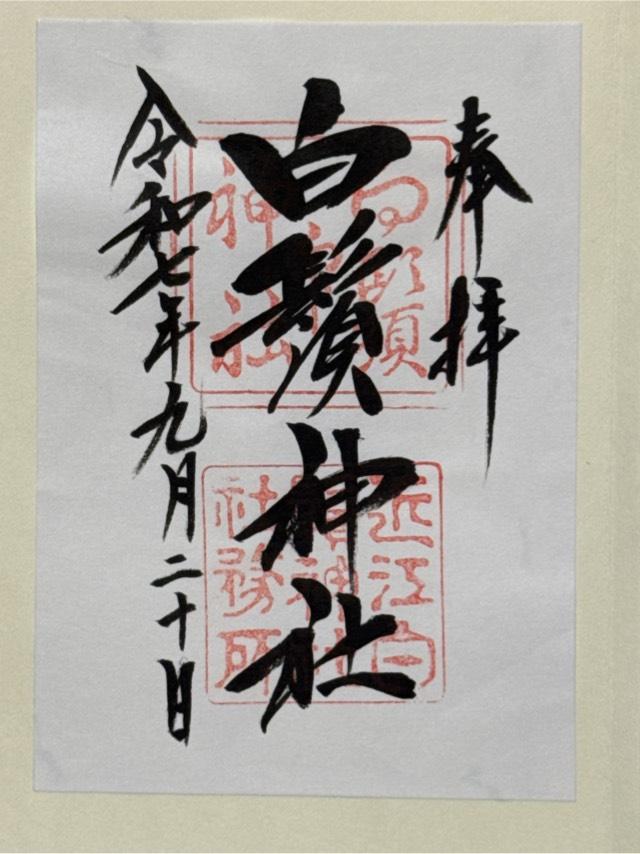 奉拝
白鬚神社
令和七年九月二十日
近江白
鬚神社
社務所